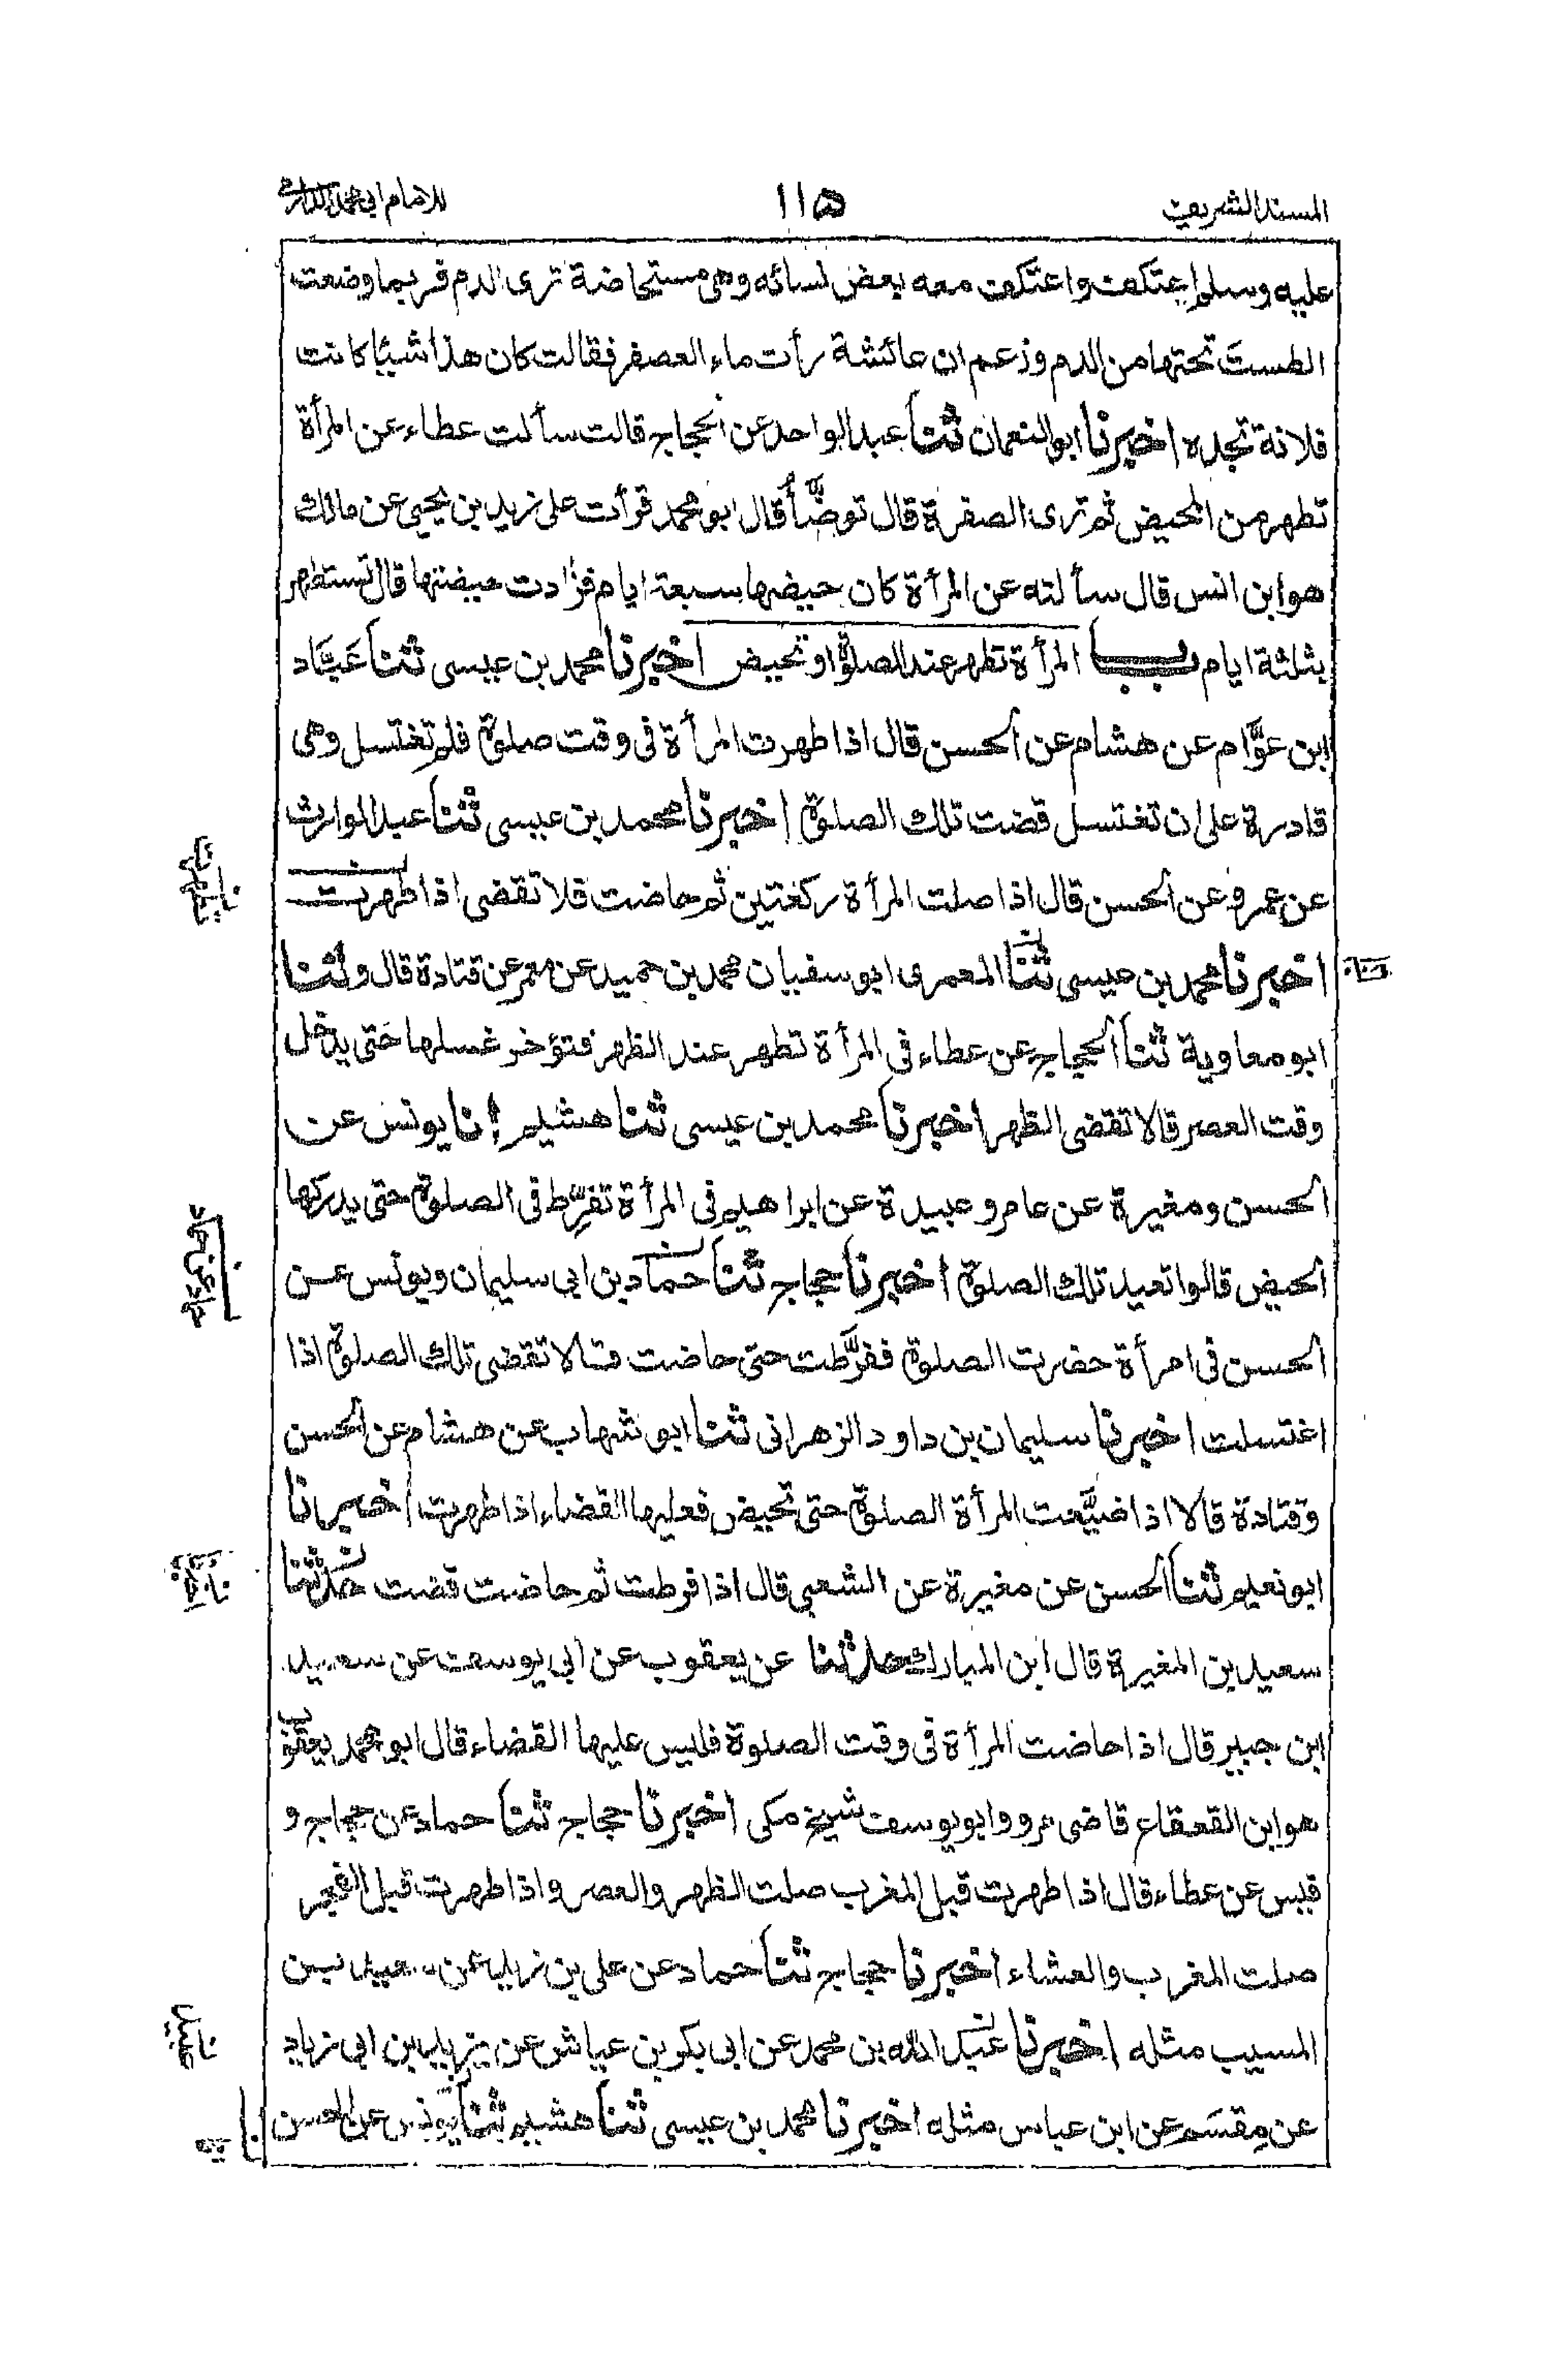 المسند الشريف
١١٥
للامام ابى محمد الدارمى
عليه وسلم اعتكف واعتكف معه بعض نسائه وهى مستحاضة ترى الدم فربما وضعت
الطستَ تحتها من الدم وزعم ان عائشة رأت ماء العصفر فقالت كان هذا شيئا كانت
فلانة تجده اخبرنا ابو النعمان ثنا عبد الواحد عن الحجاج قالت سألت عطاء عن المرأة
تطهر من الحيض ثم ترى الصفرة قال توضّأُ قال ابو محمد قرأت على زيد بن يحيى عن مالك
هو ابن انس قال سألته عن المرأة كان حيضها سبعة ايام فزادت حيضتها قال تستظهر
بثلثة ايام باب المرأة تطهر عند الصلوة او تحيض اخبرنا محمد بن عيسى ثنا عَبَّاد
ابن عوَّام عن هشام عن الحسن قال اذا طهرت المرأة فى وقت صلوة فلم تغتسل وهى
قادرة على ان تغتسل قضت تلك الصلوة اخبرنا محمد بن عيسى ثنا عبد الوارث
عن عمرو عن الحسن قال اذا صلت المرأة ركعتين ثم حاضت فلا تقضى اذا طهرت
اخبرنا محمد بن عيسى ثنا المعمرى ابو سفيان محمد بن حميد عن معمر عن قتادة قال وثنا
ابو معاوية ثنا الحجاج عن عطاء فى المرأة تطهر عند الظهر فتؤخر غسلها حتى يدخل
وقت العصر قالا تقضى الظهر اخبرنا محمد بن عيسى ثنا هشيم انا يونس عن
الحسن ومغيرة عن عامر وعبيدة عن ابراهيم فى المرأة تفرّط فى الصلوة حتى يدركها
الحيض قالوا تعيد تلك الصلوة اخبرنا حجاج ثنا حماد بن ابى سليمان ويونس عن
الحسن فى امرأة حضرت الصلوة ففرَّطت حتى حاضت قالا تقضى تلك الصلوة اذا
اغتسلت اخبرنا سليمان بن داود الزهرانى ثنا ابو شهاب عن هشام عن الحسن
وقتادة قالا اذا ضيَّعت المرأة الصلوة حتى تحيض فعليها القضاء اذا طهرت اخبرنا
ابو نعيم ثنا الحسن عن مغيرة عن الشعبى قال اذا فرطت ثم حاضت قضت حدثنا
سعيد بن المغيرة قال ابن المبارك حدثنا عن يعقوب عن ابى يوسف عن سعيد
ابن جبير قال اذا حاضت المرأة فى وقت الصلوة فليس عليها القضاء قال ابو محمد يعقوب
هو ابن القعقاع قاضى مرو وابو يوسف شيخ مكى اخبرنا حجاج ثنا حماد عن حجاج و
قيس عن عطاء قال اذا طهرت قبل المغرب صلت الظهر والعصر واذا طهرت قبل الفجر
صلت المغرب والعشاء اخبرنا حجاج ثنا حماد عن على بن زيد عن سعيد بن
المسيب مثله اخبرنا عبد الله بن محمد عن ابى بكر بن عياش عن يزيد بن ابى زياد
عن مِقسَم عن ابن عباس مثله اخبرنا محمد بن عيسى ثنا هشيم ثنا يونس عن الحسن